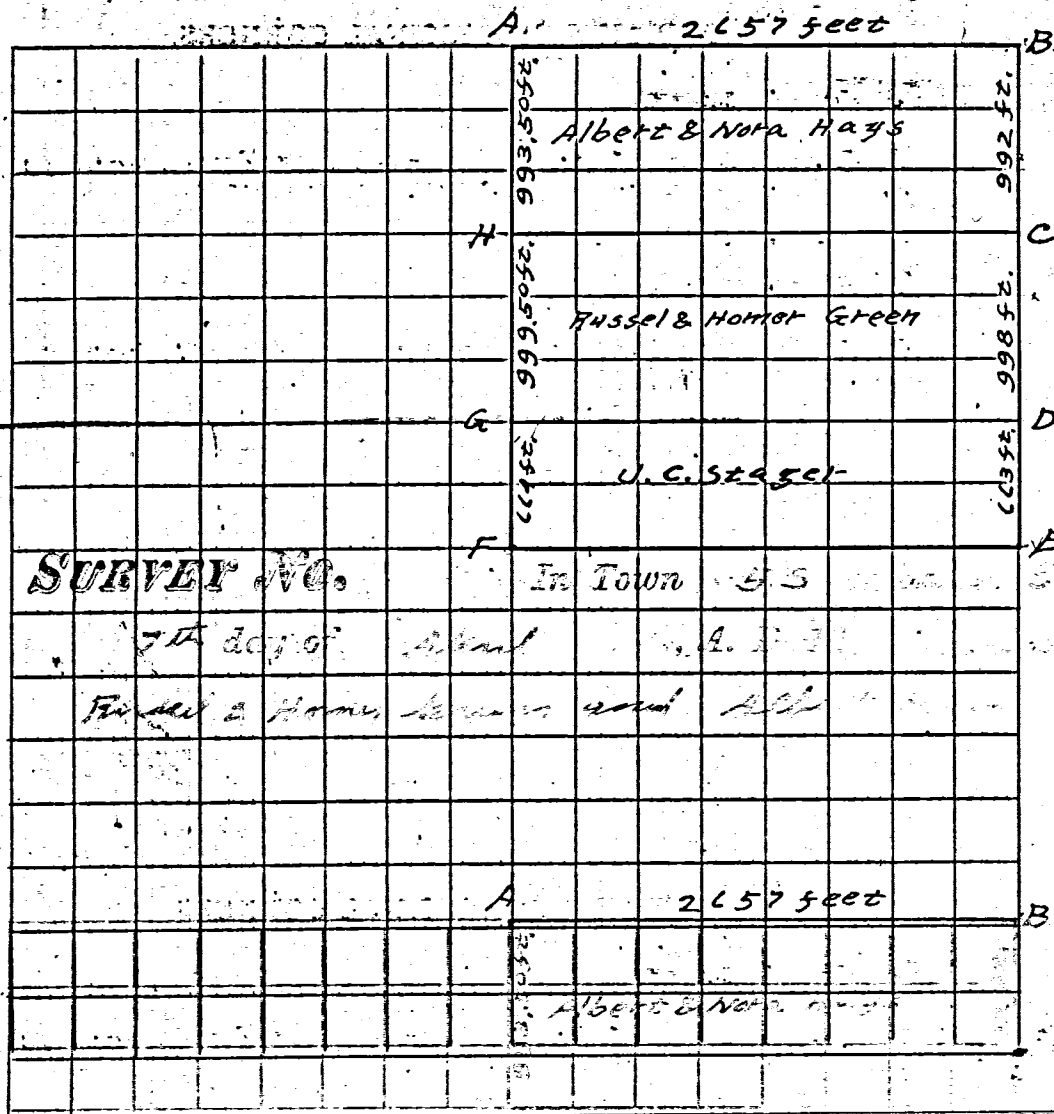 A. 2657 feet B.
993.50ft. Albert & Nora Hays 992 ft.
H C
999.50ft. Russel & Homer Green 998 ft.
G D
664ft. U. C. Stazel 663ft.
F E
SURVEY No. In Town 5 S
7th day of A.
Russel & Homer and Alb
A 2657 feet B
Albert & Nora